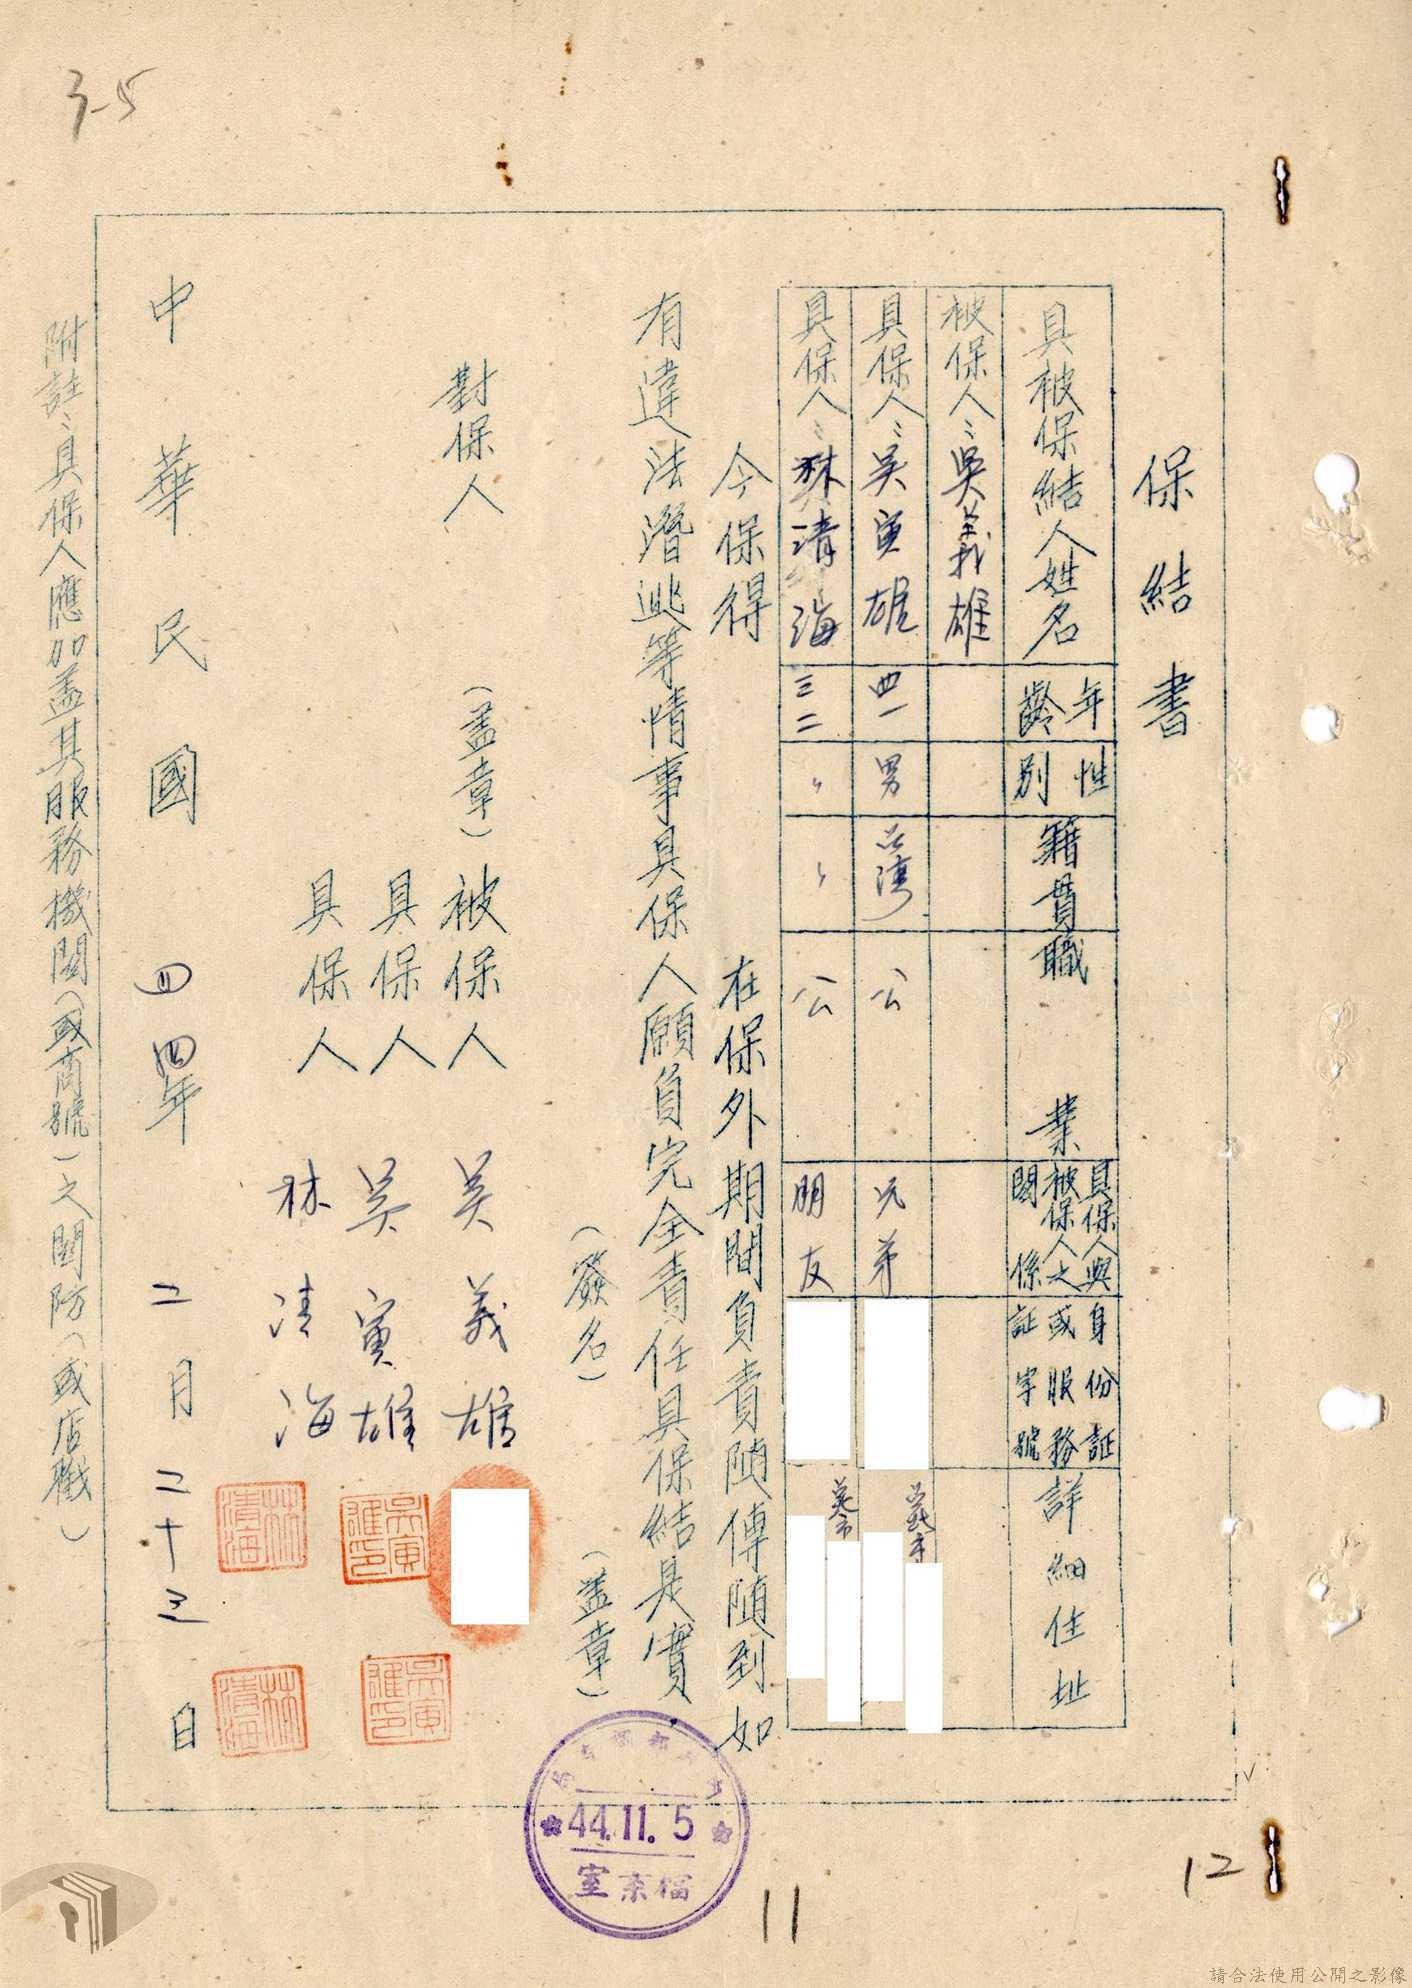 保結書
具被保結人姓名 年齡 性別 籍貫 職業 具保人與被保人之關係 身份証或服務証字號 詳細住址
被保人：吳義雄
具保人：吳寅雄 四一 男 台灣 公 兄弟 台北市
具保人：林清海 三二 〃 〃 公 朋友
今保得 在保外期間負責隨傳隨到如
有違法潛逃等情事具保人願負完全責任具保結是實
(簽名) (盖章)
對保人 (盖章) 被保人 吳義雄
具保人 吳寅雄
吳寅雄印
吳寅雄印
具保人 林清海
林清海
林清海
中華民國四四年二月二十三日
附註：具保人應加盖其服務機関(或商號)之関防(或店戳)
3-5
44.11.5
檔案室
11
12
請合法使用公開之影像